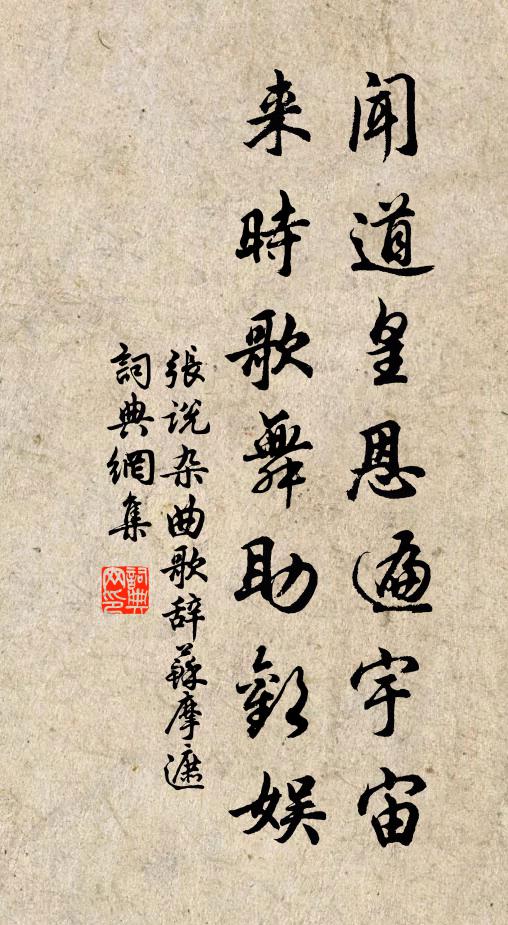 闻道皇恩遍宇宙
来時歌舞助歡娱
張说杂曲歌辞蘇摩遮
詞典網集
詞典网印